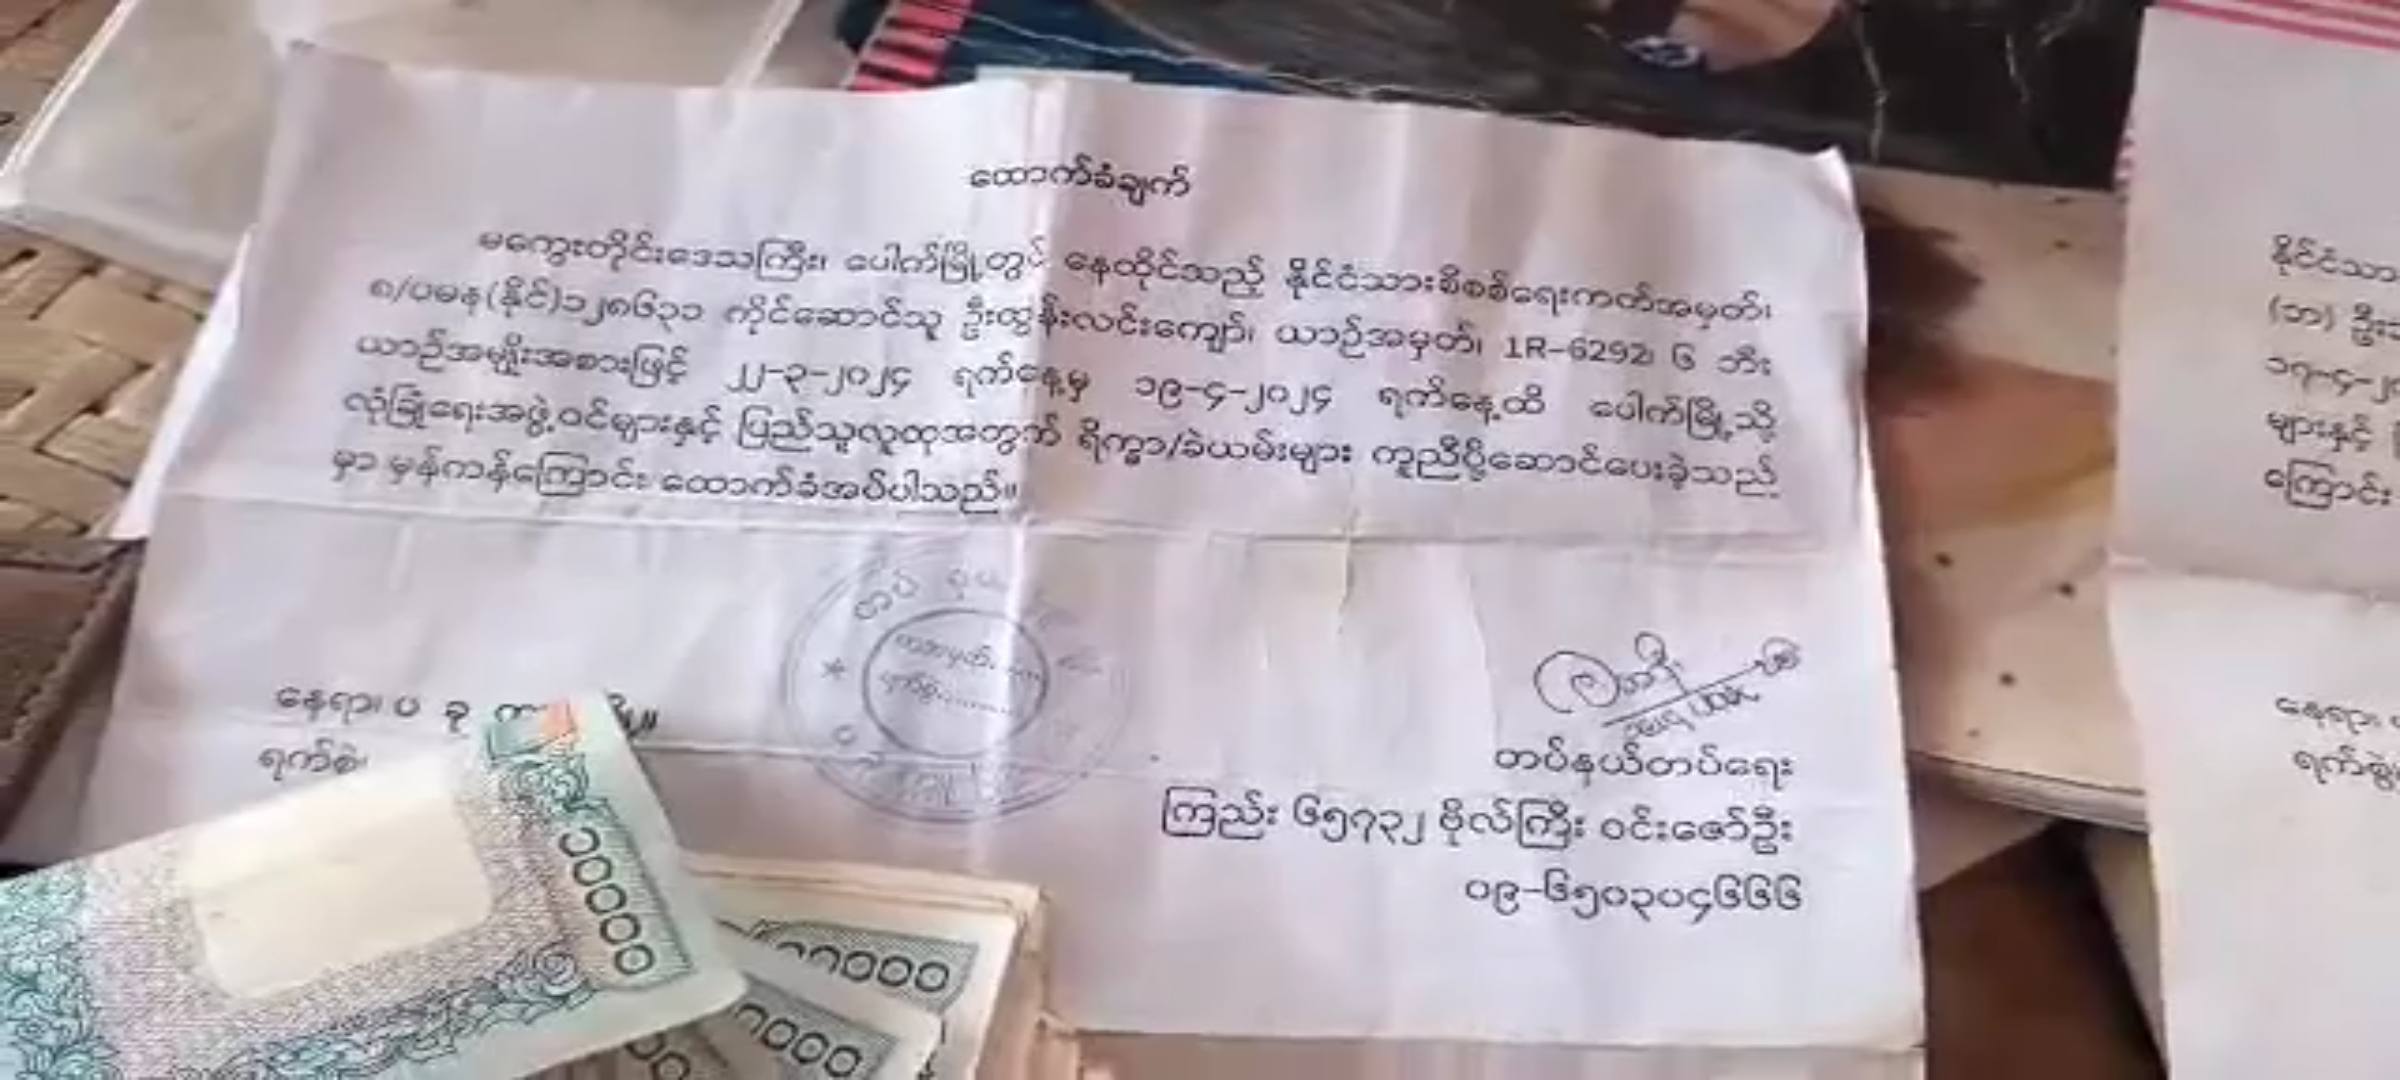 ထောက်ခံချက်
မကွေးတိုင်းဒေသကြီး၊ ပေါက်မြို့တွင် နေထိုင်သည့် နိုင်ငံသားစိစစ်ရေးကတ်အမှတ်၊
၈/ပမန(နိုင်)၁၂၈၆၃၁ ကိုင်ဆောင်သူ ဦးထွန်းလင်းကျော်၊ ယာဉ်အမှတ်၊ 1R-6292၊ ၆ ဘီး
ယာဉ်အမျိုးအစားဖြင့် ၂၂-၃-၂၀၂၄ ရက်နေ့မှ ၁၉-၄-၂၀၂၄ ရက်နေ့ထိ ပေါက်မြို့သို့
လုံခြုံရေးအဖွဲ့ဝင်များနှင့် ပြည်သူလူထုအတွက် ရိက္ခာ/ခဲယမ်းများ ကူညီပို့ဆောင်ပေးခဲ့သည်
မှာ မှန်ကန်ကြောင်း ထောက်ခံအပ်ပါသည်။
တပ်
နေရာ၊ ပ ခု
ရက်စွဲ၊
တပ်နယ်တပ်ရေး
ကြည်း ၆၅၇၃၂ ဗိုလ်ကြီး ဝင်းဇော်ဦး
၀၉-၆၅၀၃၀၄၆၆၆
၁၀၀၀၀
နိုင်ငံသား
(ဘ) ဦး
၁၇-၄-၂
များနှင့်
ကြောင်း
နေရာ၊
ရက်စွဲ